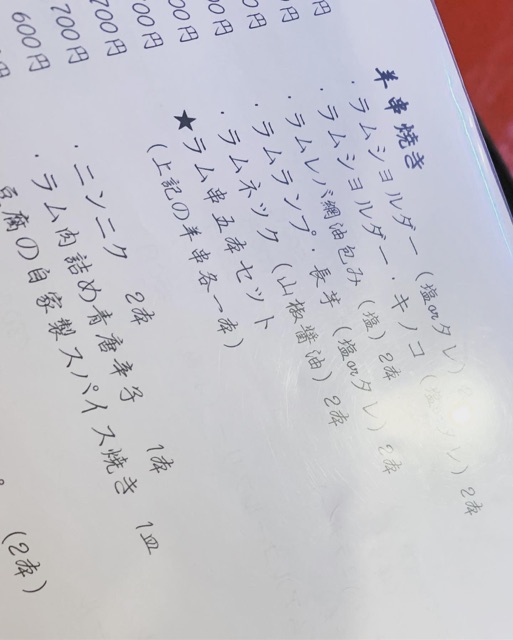 羊串焼き
・ラムショルダー（塩orタレ）2本
・ラムショルダー・キノコ（塩orタレ）2本
・ラムレバ網油包み（塩）2本
・ラムランプ・長芋（塩orタレ）2本
・ラムネック（山椒醤油）2本
★ラム串五本セット
（上記の羊串各一本）
・ニンニク 2本
・ラム肉詰め青唐辛子 1本
豆腐の自家製スパイス焼き 1皿
（2本）
円
円
00円
00円
700円
700円
600円